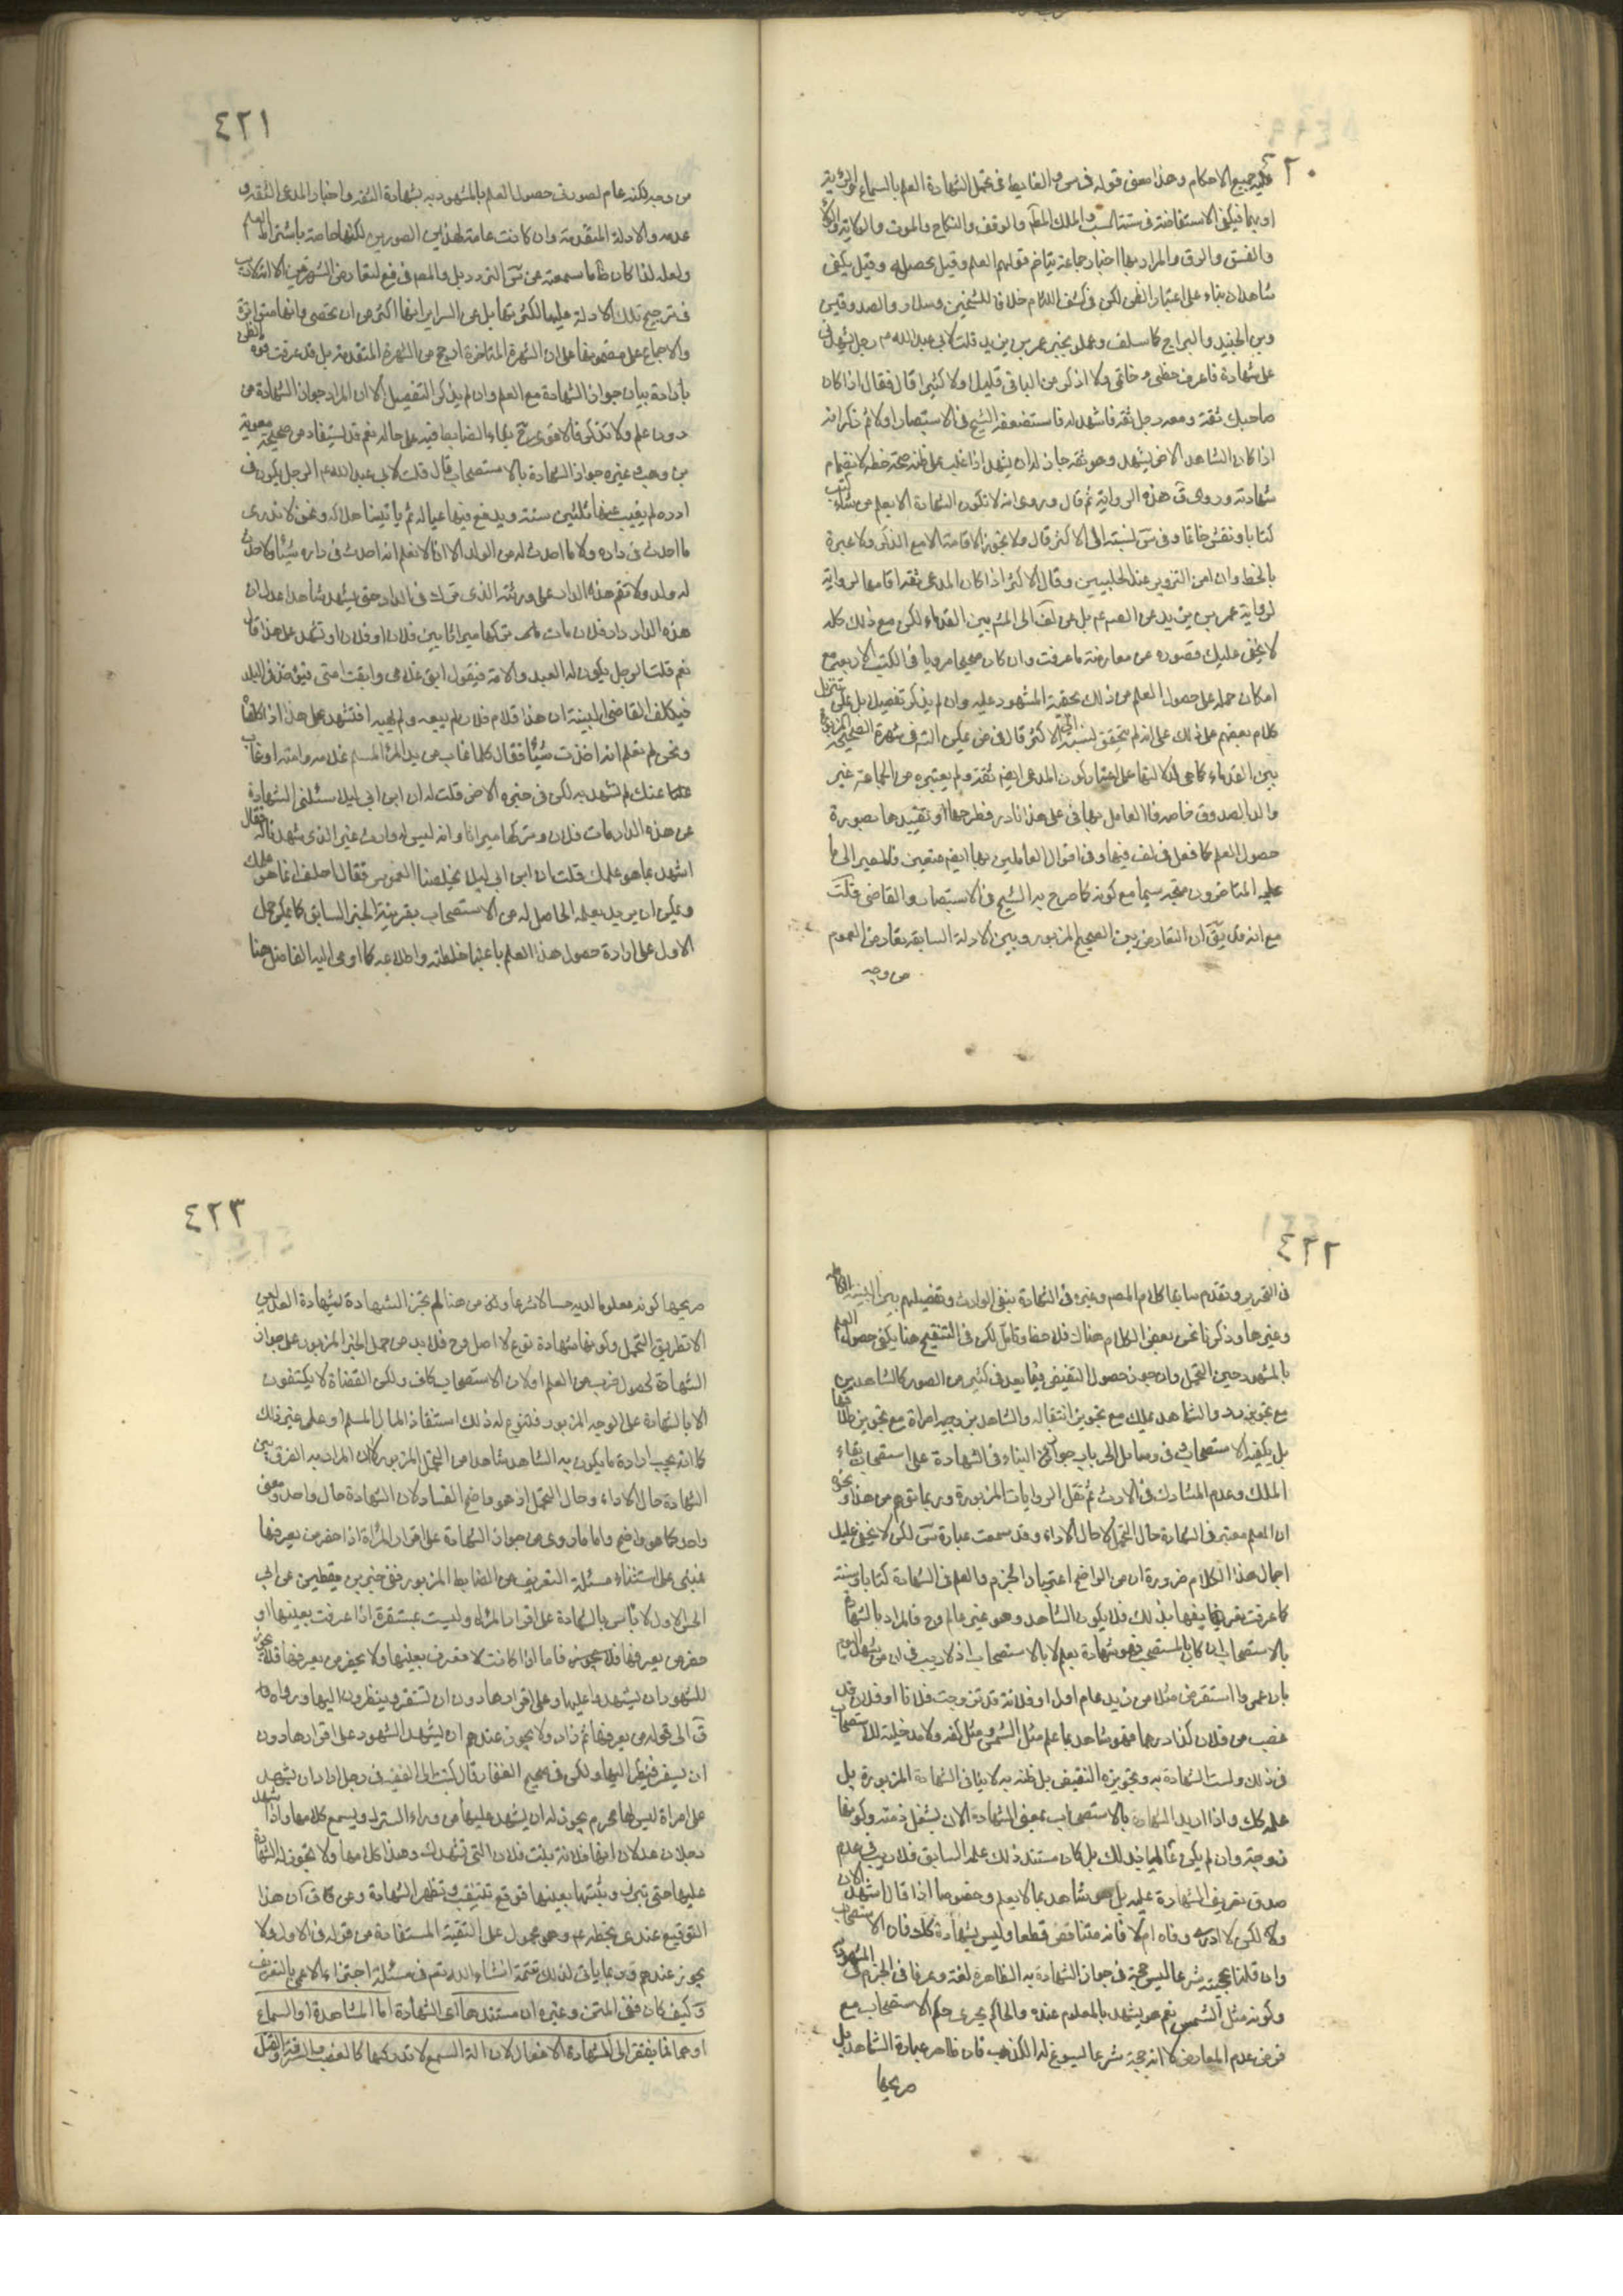 ٤٢٠
عليه جميع الاحكام وهذا معنى قوله في س والضابط في تحمل الشهادة العلم بالسماع او الرؤية
او بهما فيكفي الاستفاضة في ستة النسب والملك المطلق والوقف والنكاح والموت والولاية والولاء
والعتق والرق والمراد بها اخبار جماعة يتاخم قولهم العلم وقيل يحصله وقيل يكفي
شاهدان بناء على اعتبار الظن لكن في كشف اللثام خلافا للشيخين وسلار والصدوقين
وبن الجنيد والبراج كما سلف وعملوا بخبر عمر بن يزيد قلت لابي عبد الله م رجل يشهدني
على شهادة فاعرف خطي وخاتمي ولا اذكر من الباقي قليلا ولا كثيرا قال فقال اذا كان
صاحبك ثقة ومعه رجل ثقة فاشهد له فاستضعفه الشيخ في الاستبصار اولا ثم ذكر انه
اذا كان الشاهد الاخر يشهد وهو ثقة جاز له ان يشهد اذا غلب على ظنه صحة خطه لانضمام
شهادته وروى ق هذه الرواية ثم قال وروي انه لا تكون الشهادة الا بعلم من شاء كتب
كتابا ونقش خاتما وفي س نسبته الى الاكثر قال ولا يجوز الاقامة الا مع الذكر ولا عبرة
بالخط وان امن التزوير عند الحلبيين وقال الاكثر اذا كان المدعي ثقة اقامها لرواية
لرواية عمر بن يزيد عن الصم عم بل عن لف الى المشهور بين القدماء لكن مع ذلك كله
لا يخفى عليك قصوره عن معارضة ما عرفت وان كان صحيحا مرويا في الكتب الاربعة مع
امكان حمله على حصول العلم من ذلك بحقية المشهود عليه وان لم يذكر تفصيله بل يمكن تنزيل
كلام بعضهم على ذلك على انه لم يتحقق نسبته الى الاكثر قال في ض يمكن الشك في شهرة الصحيحة المزبورة
بين القدماء كما عن
والد الصدوق خاصة فالعامل بها في على هذا نادر فطرحها او تقييدها بصورة
حصول العلم كما فعل في لف فيها وفي اقوال العاملين بها ايضا متعين فالمصير الى ما
عليه المتاخرون متجه سيما مع كونه كما صرح به الشيخ في الاستبصار والقاضي قلت
مع انه قد يق ان التعارض بين الصحيح المزبور وبين الادلة السابقة تعارض العموم
من وجه
٤٢١
من وجه لكنه عام لصورتي حصول العلم بالمشهود به بشهادة الثقة واخبار المدعي الثقة و
عدمه والادلة المتقدمة وان كانت عامة لهذين الصورتين لكنها خاصة باشتراط العلم
ولعله لذا كان ظاهر ما سمعته من س التردد بل والمصم في فع لتعارض الشهرتين الا ان
في ترجيح تلك الادلة عليها لكثرتها بل عن السرائر انها اكثر من ان تحصى وانها متواترة
والاجماع على مضمونها على ان الشهرة المتاخرة ارجح من الشهرة المتقدمة بل قد عرفت قوة الظن
بارادة بيان جواز الشهادة مع العلم وان لم يذكر التفصيل الا ان المراد جواز الشهادة من
دون علم ولا تذكر فالاقوى ح بقاء الضابط فيه على حاله نعم قد يستفاد من صحيحة معوية
بن وهب وغيره جواز الشهادة بالاستصحاب قال قلت لابي عبد الله عم الرجل يكون في
داره ثم يغيب عنها ثلثين سنة ويدع فيها عياله ثم ياتينا هلاكه ونحن لا ندري
ما احدث في داره ولا ما احدث له من الولد الا انا لا نعلم انه احدث في داره شيئا ولا حدث
له ولد ولا تقسم هذه الدار على ورثته الذي ترك في الدار حتى يشهد شاهدا عدل ان
هذه الدار دار فلان مات وتركها ميراثا بين فلان وفلان او نشهد على هذا قال
نعم قلت الرجل يكون له العبد والامة فيقول ابق غلامي وابقت امتي فيؤخذ في البلد
فيكلفه القاضي البينة ان هذا غلام فلان لم يبعه ولم يهبه افنشهد على هذا اذا كلفناه
ونحن لم نعلم انه احدث شيئا فقال كلما غاب من يد المرء المسلم غلامه وامته او غاب
عنك لم تشهد به لكن في خبره الاخر قلت له ان ابن ابي ليلى سئلني الشهادة
عن هذه الدار مات فلان وتركها ميراثا وانه ليس له وارث غير الذي شهدنا له فقال
اشهد بما هو علمك قلت ان ابن ابي ليلى يحلفنا الغموس فقال احلف انما هو على علمك
ويمكن ان يريد بعلمه الحاصل له من الاستصحاب بقرينة الخبر السابق كما يمكن حمل
الاول على ارادة حصول هذا العلم باعتبار خلطته واطلاعه كما اومى اليه الفاضل هنا
٤٢٢
في التحرير وتقدم سابقا كلام المصم وغيره في الشهادة بنفي الوارث وتفصيلهم بين البينة الكاملة
وغيرها وذكرنا نحن بعض الكلام هناك فلاحظ وتامل لكن في التنقيح هنا يكفي حصول العلم
بالمشهود حين التحمل وان جوز حصول النقيض فيما بعد في كثير من الصور كالشاهد بدين
مع تجويز رده والشاهد بملك مع تجويز انتقاله والشاهد بزوجية امراة مع تجويز طلاقها
بل يكفيه الاستصحاب وفي وسائل الحر باب جواز البناء في الشهادة على استصحاب بقاء
الملك وعدم المشارك في الارث ثم نقل الروايات المزبورة وربما توهم من هذا ونحوه
ان العلم معتبر في الشهادة حال التحمل لا حال الاداء وقد سمعت عبارة س لكن لا يخفى عليك
اجمال هذا الكلام ضرورة ان من الواضح اعتبار الجزم والعلم في الشهادة كتابا وسنة
كما عرفت تعريفها بذلك فلا يكون الشاهد وهو غير عالم وح فالمراد بالشهادة
بالاستصحاب ان كان بالمستصحب فهو شهادة بعلم لا بالاستصحاب اذ لا ريب في ان من شهد اليوم
بان عمروا استقرض مثلا من زيد عام اول او فلانة قد تزوجت فلانا او فلان قد
غصب من فلان كذا درهما فهو شاهد بما علم مثل الشمس ومثل كفه ولا مدخلية للاستصحاب
في ذلك وليست الشهادة به وتجويزه النقيض بل ظنه به لا ينافي الشهادة المزبورة بل
علمه كك واذا اريد الشهادة بالاستصحاب بمعنى الشهادة الان بشغل ذمته وكونها
زوجته وان لم يكن عالما بذلك بل كان مستند ذلك علمه السابق فلا ريب في عدم
صدق تعريف الشهادة عليه بل هو شاهد بما لا يعلم وخصوصا اذا قال اشهد الان
ولكن لا ادري وفاه ام لا فانه متناقض قطعا وليس شهادة كك فان الاستصحاب
وان قلنا بحجيته شرعا ليس حجة في جواز الشهادة به الظاهرة لغة وعرفا في الجزم بالمشهود به
وكونه مثل الشمس نعم هو يشهد بالمعلوم عنده والحاكم يجري حكم الاستصحاب مع
فرض عدم المعارض لا انه حجة شرعا يسوغ له الكذب فان ظاهر عبارة الشاهد بل
صريحها
٤٢٣
صريحها كونه معلوما لديه حسا لا شرعا ومن هنا لم تجز الشهادة بشهادة العدلين
الا بطريق التحمل وكونها شهادة بفرع لا اصل وح فلا بد من حمل الخبر المزبور على جواز
الشهادة لحصول ضرب من العلم او لان الاستصحاب كاف ولكن القضاة لا يكتفون
الا بالشهادة على الوجه المزبور فسوغ له ذلك استنقاذ المال المسلم او على غير ذلك
كما انه يجب ارادة ما يكون به الشاهد شاهدا من التحمل المزبور لان المراد به الفرق بين
الشهادة حال الاداء وحال التحمل اذ هو واضح الفساد لان الشهادة حال واحد ومعنى
واحد كما هو واضح واما ما روي من جواز الشهادة على اقرار المراة اذا حضر من يعرفها
فمبني على استثناء مسئلة التعريف من الضابط المزبور ففي خبر بن يقطين عن ابي
الحسن الاول لا باس بالشهادة على اقرار المراة وليست بمسفرة اذا عرفت بعينها او
حضر من يعرفها فاما اذا كانت لا تعرف بعينها ولا يحضر من يعرفها فلا يجوز
للشهود ان يشهدوا عليها وعلى اقرارها دون ان تسفر وينظرون اليها ورواه
ق الى قوله من يعرفها ثم زاد ولا يجوز عندهم ان يشهد الشهود على اقرارها دون
ان تسفر فينظر اليها ولكن في صحيح الصفار قال كتبت الى الفقيه في رجل اراد ان يشهد
على امراة ليس لها محرم يجوز له ان يشهد عليها من وراء الستر ويسمع كلامها واذا شهد
رجلان عدلان انها فلانة بنت فلان التي تشهدك وهذا كلامها ولا تجوز له الشهادة
عليها حتى تبرز وتثبتها بعينها فوقع تتنقب وتظهر للشهادة وعن ق ان هذا
التوقيع عندي بخطه عم وهو محمول على التقية المستفادة من قوله في الاول ولا
يجوز عندهم وربما ياتي لذلك تتمة انشاء الله تعم في مسئلة اجتزاء الاعمى بالتعريف
وكيف كان ففي المتن وغيره ان مستندها اي الشهادة اما المشاهدة او السماع
او هما فما يفتقر الى المشاهدة الافعال لان الة السمع لا تدركها كالغصب والسرقة والقتل